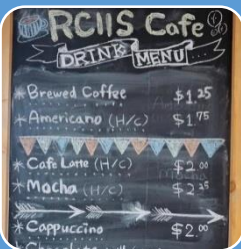 RCIIS Cafe
DRINK MENU
Brewed Coffee $1.25
Americano (H/C) $1.75
Cafe Latte (H/C) $2.00
Mocha (H/C) $2.25
Cappuccino $2.00